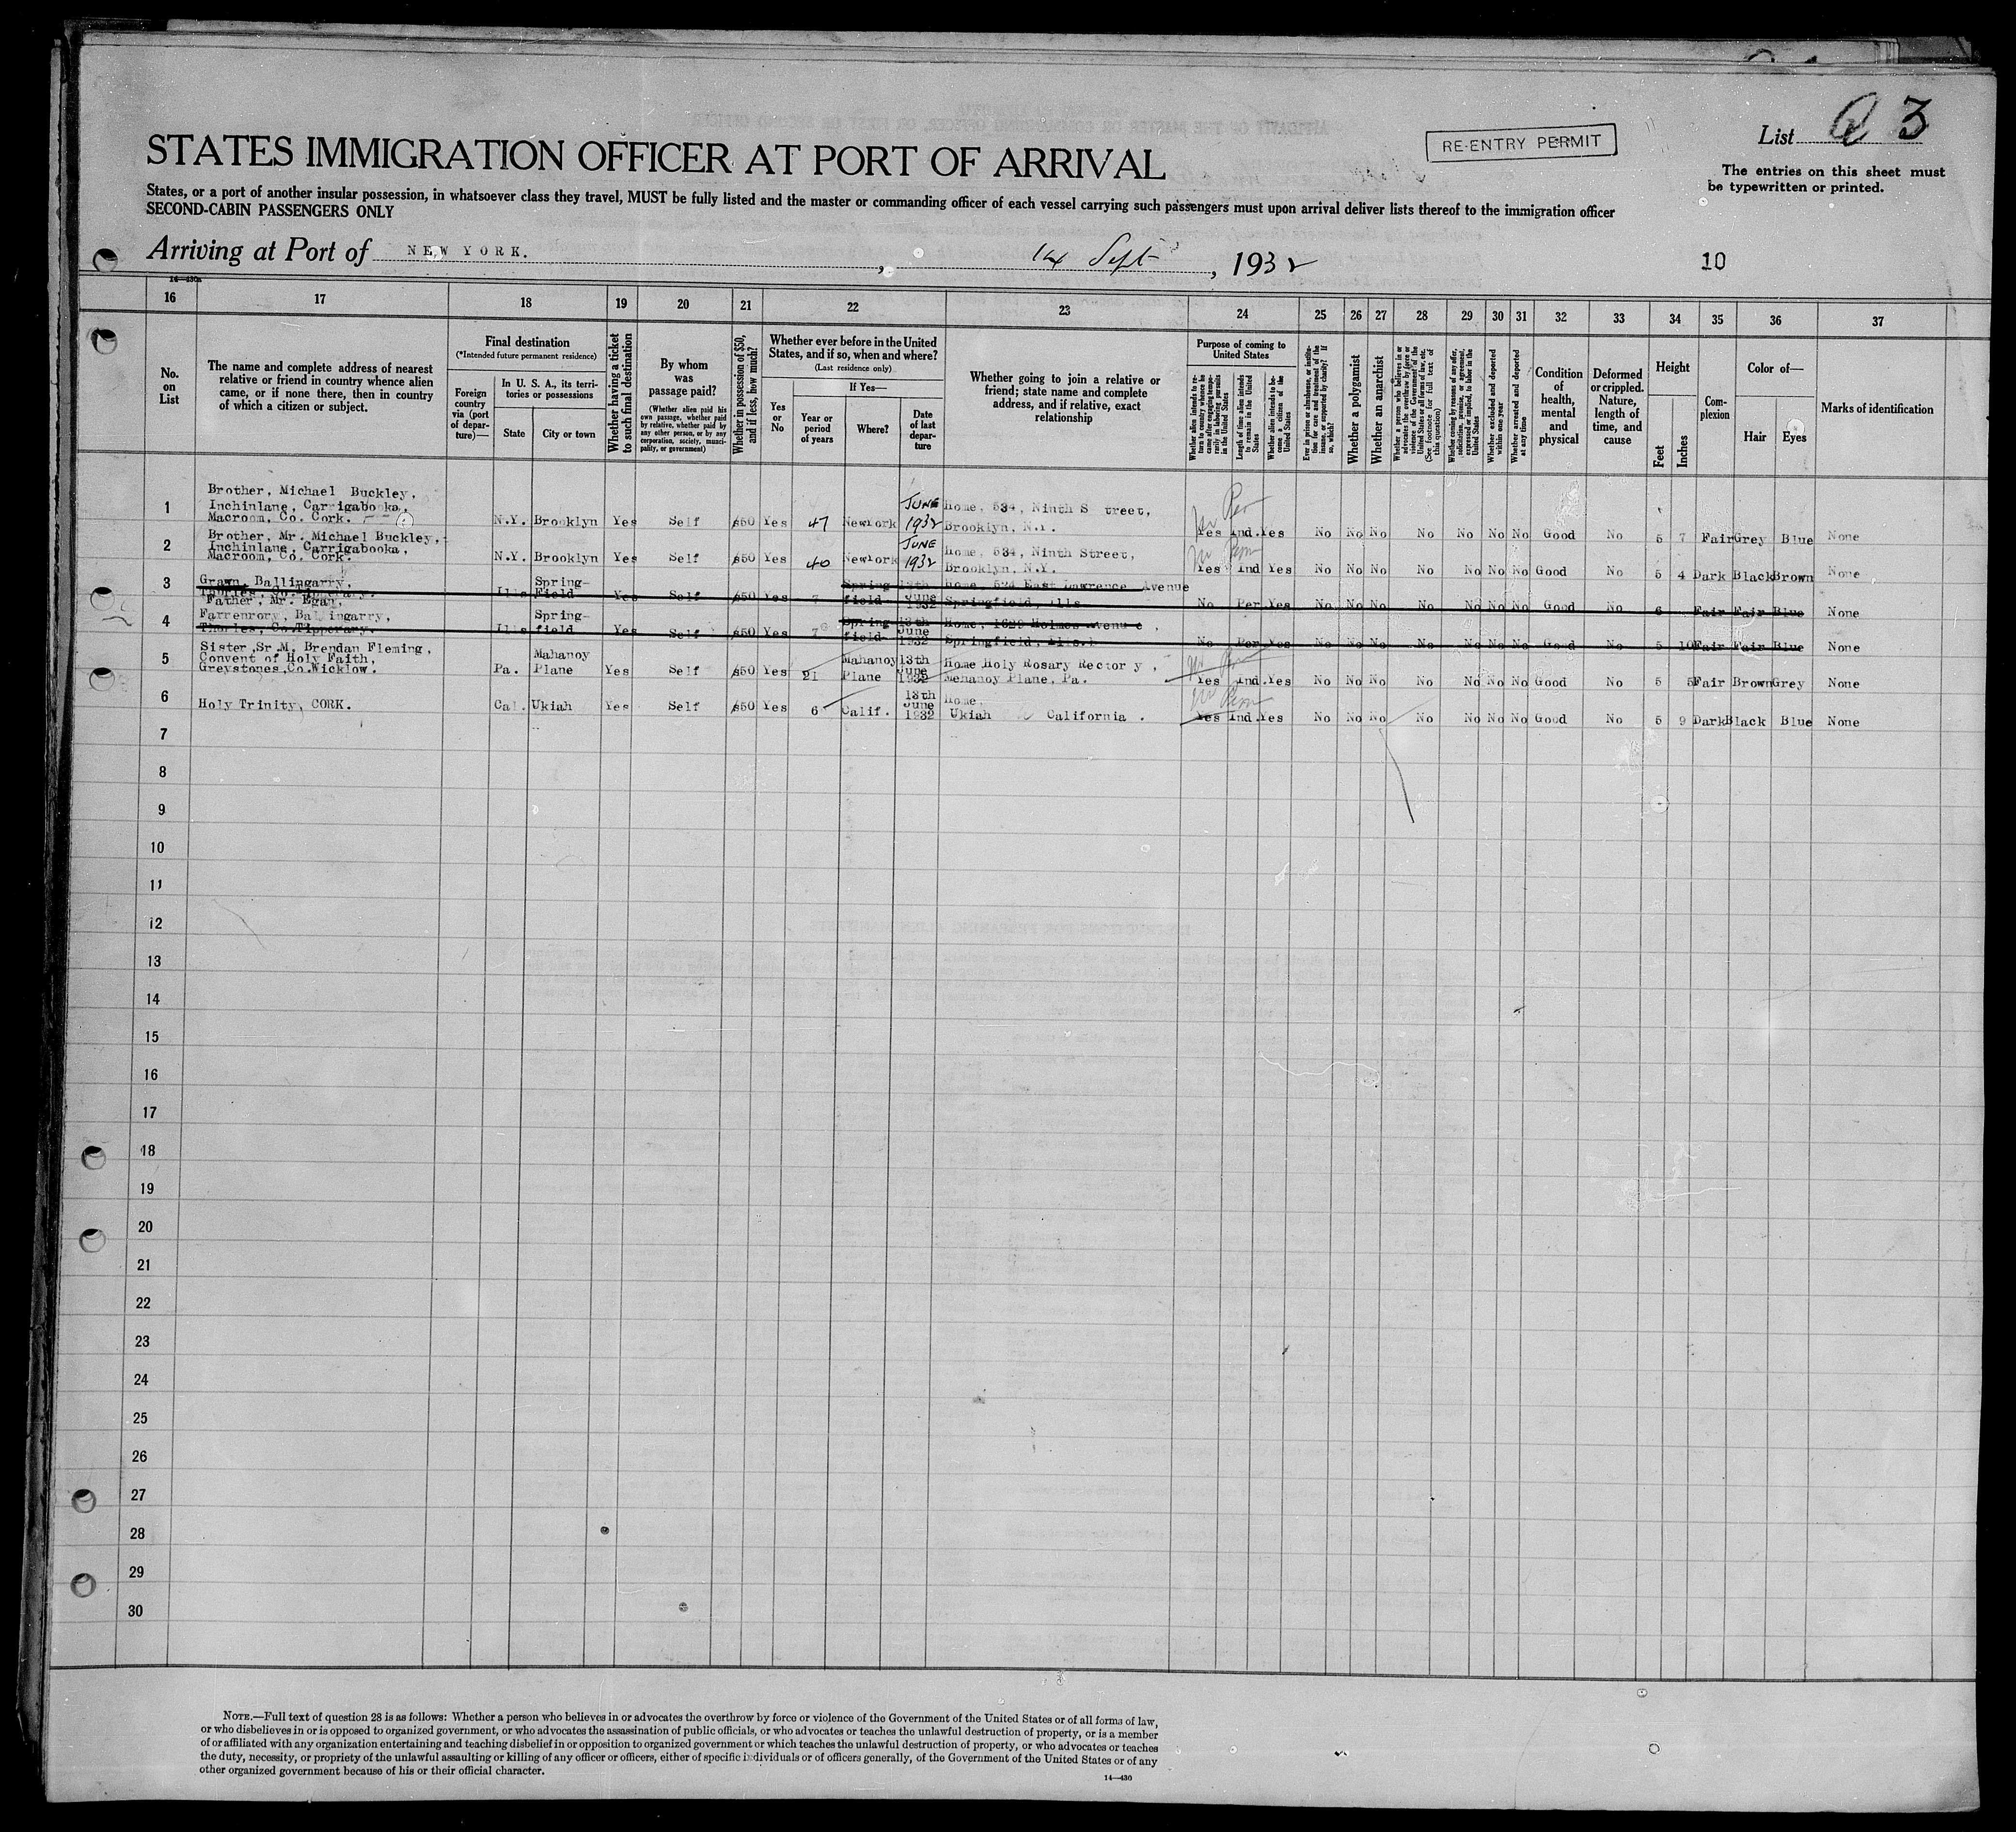 RE-ENTRY PERMIT
List 3
STATES IMMIGRATION OFFICER AT PORT OF ARRIVAL
The entries on this sheet must
be typewritten or printed.
States, or a port of another insular possession, in whatsoever class they travel, MUST be fully listed and the master or commanding officer of each vessel carrying such passengers must upon arrival deliver lists thereof to the immigration officer
SECOND-CABIN PASSENGERS ONLY
Arriving at Port of NEW YORK. , 14 Sept , 1932
10
14—430a
16 17 18 19 20 21 22 23 24 25 26 27 28 29 30 31 32 33 34 35 36 37
No.
on
List
The name and complete address of nearest
relative or friend in country whence alien
came, or if none there, then in country
of which a citizen or subject.
Final destination
(*Intended future permanent residence)
Foreign
country
via (port
of depar-
ture)—
In U. S. A., its terri-
tories or possessions
State
City or town
Whether having a ticket
to such final destination
By whom
was
passage paid?
(Whether alien paid his
own passage, whether paid
by relative, whether paid by
any other person, or by any
corporation, society, munici-
pality, or government)
Whether in possession of $50,
and if less, how much?
Whether ever before in the United
States, and if so, when and where?
(Last residence only)
If Yes—
Yes
or
No
Year or
period
of years
Where?
Date
of last
depar-
ture
Whether going to join a relative or
friend; state name and complete
address, and if relative, exact
relationship
Purpose of coming to
United States
Whether alien intends to re-
turn to country whence he
came after engaging tempo-
rarily in laboring pursuits
in the United States
Length of time alien intends
to remain in the United
States
Whether alien intends to be-
come a citizen of the
United States
Ever in prison or almshouse, or institu-
tion for care and treatment of the
insane, or supported by charity? If
so, which?
Whether a polygamist
Whether an anarchist
Whether a person who believes in or
advocates the overthrow by force or
violence of the Government of the
United States or all forms of law, etc.
(See footnote for full text of
this question)
Whether coming by reasons of any offer,
solicitation, promise, or agreement,
expressed or implied, to labor in the
United States
Whether excluded and deported
within one year
Whether arrested and deported
at any time
Condition
of
health,
mental
and
physical
Deformed
or crippled.
Nature,
length of
time, and
cause
Height
Feet
Inches
Com-
plexion
Color of—
Hair
Eyes
Marks of identification
1
Brother, Michael Buckley,
Inchinlane, Carrigabooka,
Macroom, Co. Cork.
N.Y. Brooklyn Yes Self $50 Yes 47 NewYork JUNE
1932
Home, 534, Ninth S treet,
Brooklyn, N.Y.
Yes Ind. Yes No No No No No No No Good No 5 7 Fair Grey Blue None
2
Brother, Mr. Michael Buckley,
Inchinlane, Carrigabooka,
Macroom, Co. Cork.
N.Y. Brooklyn Yes Self $50 Yes 40 NewYork JUNE
1932
Home, 534, Ninth Street,
Brooklyn, N.Y.
Yes Ind Yes No No No No No No No Good No 5 4 Dark Black Brown None
3
Grawn, Ballingarry,
Thurles, Co. Tipperary.
Ills Spring-
Field
Yes Self $50 Yes 7 Spring-
field
13th
June
1932
Home, 524 East Lawrence Avenue
Springfield, Ills
No Per Yes No No No No No No No Good No 6 Fair Fair Blue None
4
Father, Mr. Egan,
Farrenrory, Ballingarry,
Thurles, Co.Tipperary.
Ills Spring-
field
Yes Self $50 Yes 7 Spring-
field
13th
June
1932
Home, 1629 Holmes Avenue,
Springfield, Ills.
No Per Yes No No No No No No No Good No 5 10 Fair Fair Blue None
5
Sister, Sr M. Brendan Fleming,
Convent of Holy Faith,
Greystones, Co.Wicklow.
Pa. Mahanoy
Plane
Yes Self $50 Yes 21 Mahanoy
Plane
13th
June
1932
Home Holy Rosary Rector y,
Mehanoy Plane, Pa.
Yes Ind. Yes No No No No No No No Good No 5 5 Fair Brown Grey None
6
Holy Trinity, CORK.
Cal. Ukiah Yes Self $50 Yes 6 Calif. 13th
June
1932
Home,
Ukiah California.
Yes Ind. Yes No No No No No No No Good No 5 9 Dark Black Blue None
7
8
9
10
11
12
13
14
15
16
17
18
19
20
21
22
23
24
25
26
27
28
29
30
NOTE.—Full text of question 28 is as follows: Whether a person who believes in or advocates the overthrow by force or violence of the Government of the United States or of all forms of law,
or who disbelieves in or is opposed to organized government, or who advocates the assassination of public officials, or who advocates or teaches the unlawful destruction of property, or is a member
of or affiliated with any organization entertaining and teaching disbelief in or opposition to organized government or which teaches the unlawful destruction of property, or who advocates or teaches
the duty, necessity, or propriety of the unlawful assaulting or killing of any officer or officers, either of specific individuals or of officers generally, of the Government of the United States or of any
other organized government because of his or their official character.
14—430